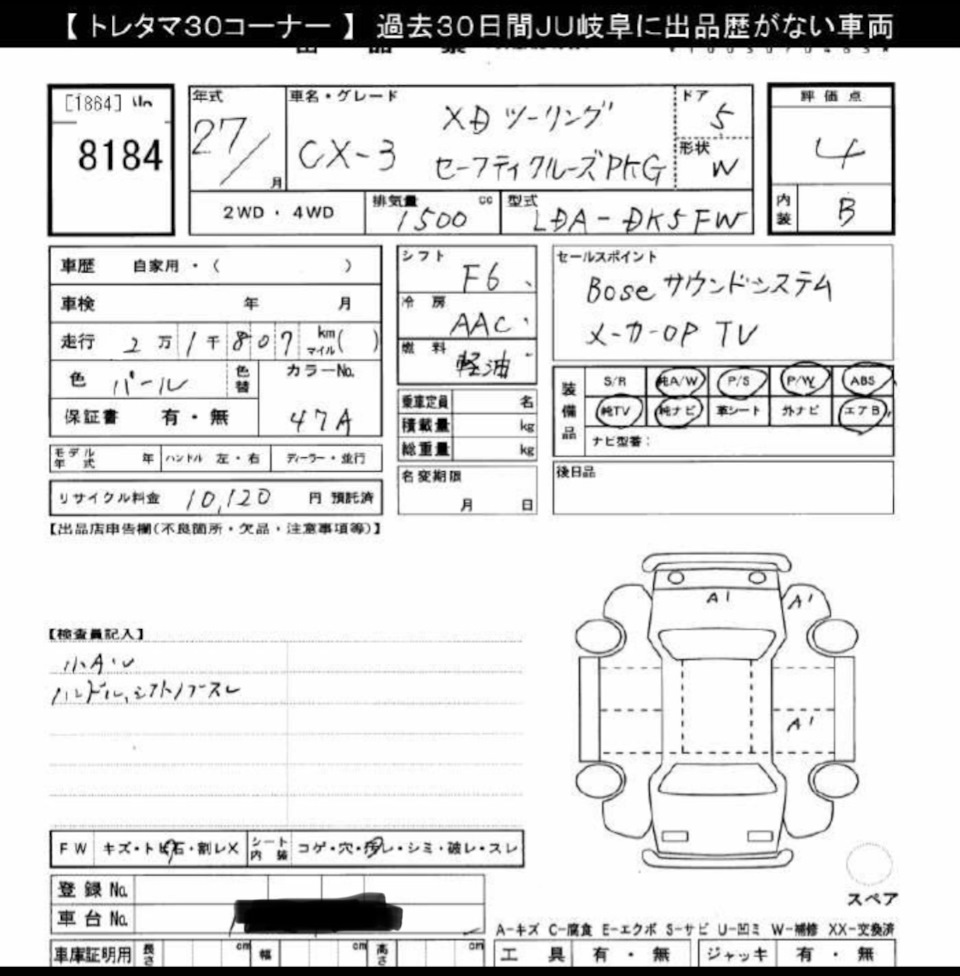 【 トレタマ30コーナー 】 過去30日間JU岐阜に出品歴がない車両
[1864]
8184
年式 車名・グレード ドア 評価点
27/ 月 CX-3 XDツーリング 5
セーフティクルーズPKG 形状 W 4
2WD・4WD 排気量 1500 cc 型式 LDA-DK5FW 内装 B
車歴 自家用・( )
車検 年 月
走行 2万1千807 km マイル( )
色 パール 色替 カラーNo. 47A
保証書 有・無
モデル年式 年 ハンドル 左・右 ディーラー・並行
リサイクル料金 10,120 円 預託済
シフト F6
冷房 AAC
燃料 軽油
乗車定員 名
積載量 kg
総重量 kg
名変期限
月 日
セールスポイント
Boseサウンドシステム
メーカーOP TV
装備品 S/R 純A/W P/S P/W ABS
純TV 純ナビ 革シート 外ナビ エアB
ナビ型番:
後日品
【出品店申告欄(不良箇所・欠品・注意事項等)】
【検査員記入】
小A・U
ハンドル、シフトノブスレ
A1 A1
A1
FW キズ・トビ石・割レX シート内装 コゲ・穴・汚レ・シミ・破レ・スレ
登録No.
車台No.
スペア
A-キズ C-腐食 E-エクボ S-サビ U-凹ミ W-補修 XX-交換済
車庫証明用 長さ cm 幅 cm 高さ cm 工具 有・無 ジャッキ 有・無